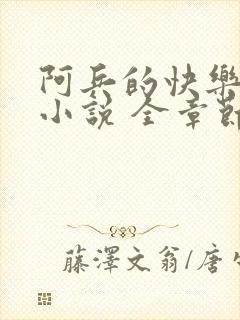 阿兵的快樂
小說 全章節
藤澤文翁/唐